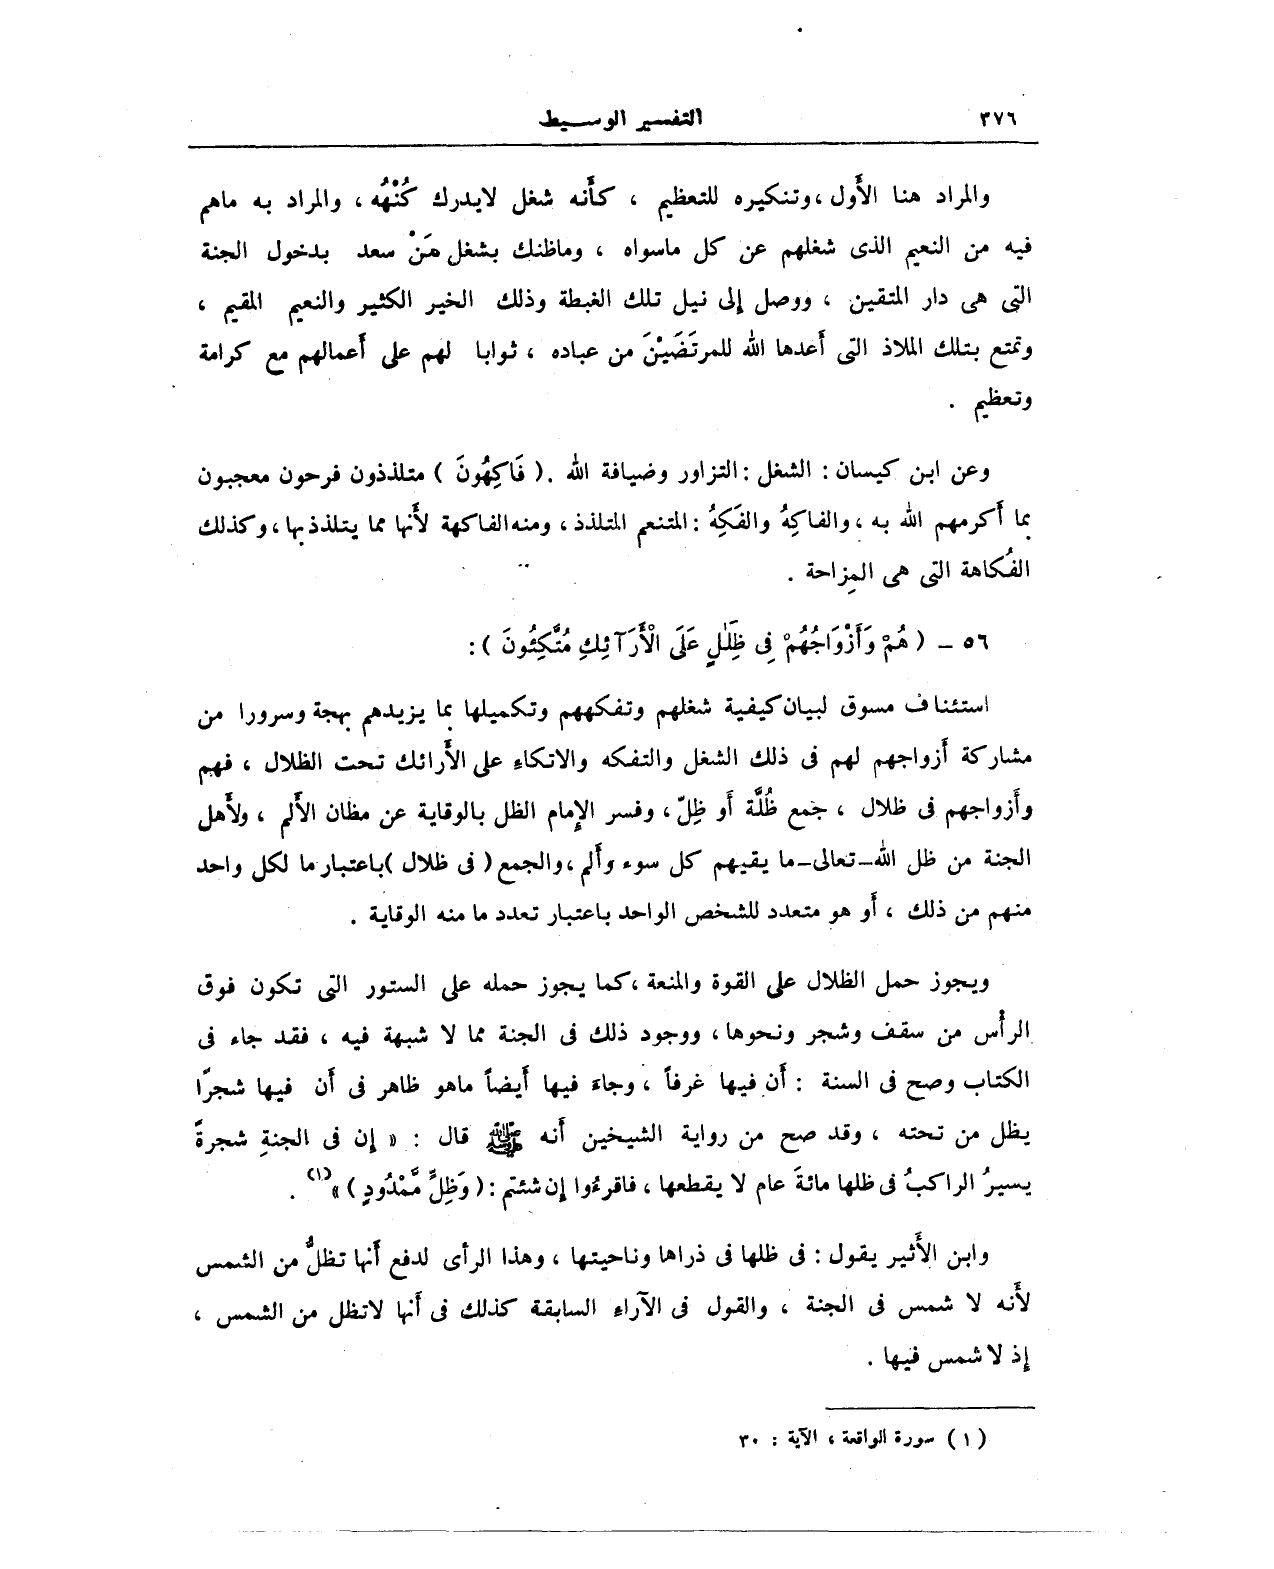 ٣٧٦
التفسير الوسيط
والمراد هنا الأَول ، وتنكيره للتعظيم ، كأَنه شغل لايدرك كُنْهُه ، والمراد به ماهم
فيه من النعيم الذى شغلهم عن كل ماسواه ، وماظنك بشغل مَنْ سعد بدخول الجنة
التى هى دار المتقين ، ووصل إلى نيل تلك الغبطة وذلك الخير الكثير والنعيم المقيم ،
وتمتع بتلك الملاذ التى أَعدها الله للمرتَضَيْنَ من عباده ، ثوابا لهم على أَعمالهم مع كرامة
وتعظيم .
وعن ابن كيسان : الشغل : التزاور وضيافة الله . ( فَاكِهُونَ ) متلذذون فرحون معجبون
بما أَكرمهم الله به ، والفاكِهُ والفَكِهُ : المتنعم المتلذذ ، ومنه الفاكهة لأَنها مما يتلذذ بها ، وكذلك
الفُكاهة التى هى المِزاحة .
٥٦ – ( هُمْ وَأَزْوَاجُهُمْ فِى ظِلَٰلٍ عَلَى الْأَرَآئِكِ مُتَّكِئُونَ ) :
استئناف مسوق لبيان كيفية شغلهم وتفكههم وتكميلها بما يزيدهم بهجة وسرورا من
مشاركة أَزواجهم لهم فى ذلك الشغل والتفكه والاتكاءِ على الأَرائك تحت الظلال ، فهم
وأَزواجهم فى ظلال ، جمع ظُلَّة أَو ظِلّ ، وفسر الإِمام الظل بالوقاية عن مظان الأَلم ، ولأَهل
الجنة من ظل الله – تعالى – ما يقيهم كل سوء وأَلم ، والجمع ( فى ظلال ) باعتبار ما لكل واحد
منهم من ذلك ، أَو هو متعدد للشخص الواحد باعتبار تعدد ما منه الوقاية .
ويجوز حمل الظلال على القوة والمنعة ، كما يجوز حمله على الستور التى تكون فوق
الرأْس من سقف وشجر ونحوها ، ووجود ذلك فى الجنة مما لا شبهة فيه ، فقد جاء فى
الكتاب وصح فى السنة : أَن فيها غرفاً ، وجاءَ فيها أَيضاً ماهو ظاهر فى أَن فيها شجرًا
يظل من تحته ، وقد صح من رواية الشيخين أَنه ﷺ قال : « إن فى الجنةِ شجرةً
يسيرُ الراكبُ فى ظلها مائةَ عام لا يقطعها ، فاقرءُوا إن شئتم : ( وَظِلٍّ مَّمْدُودٍ ) »(١) .
وابن الأَثير يقول : فى ظلها فى ذراها وناحيتها ، وهذا الرأى لدفع أَنها تظلُّ من الشمس
لأَنه لا شمس فى الجنة ، والقول فى الآراءِ السابقة كذلك فى أَنها لاتظل من الشمس ،
إذ لا شمس فيها .
(١) سورة الواقعة ، الآية : ٣٠